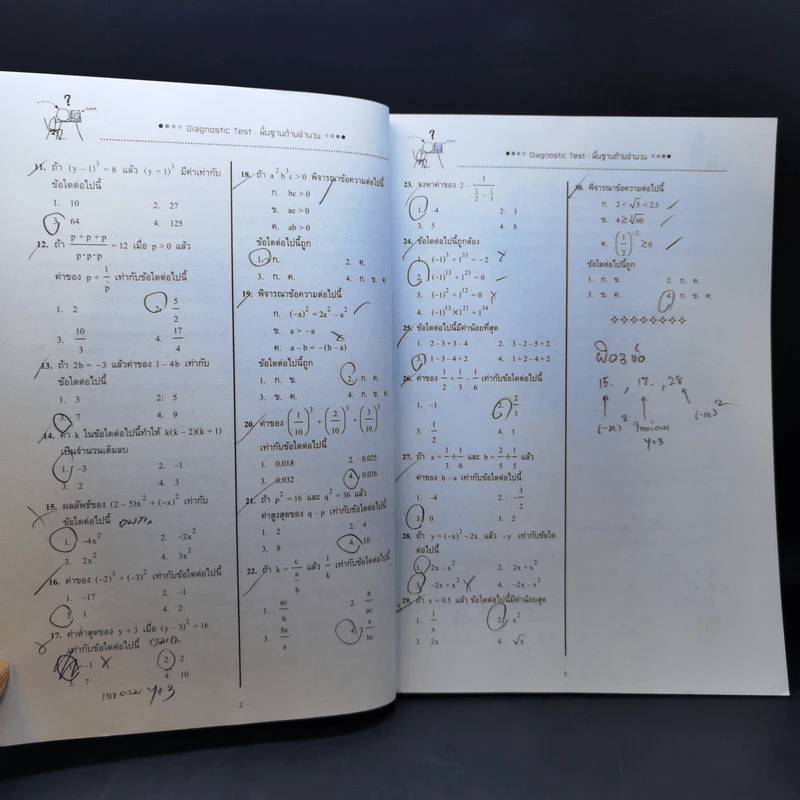 Diagnostic Test : พื้นฐานด้านจำนวน
11. ถ้า (y – 1)³ = 8 แล้ว (y + 1)³ มีค่าเท่ากับ
ข้อใดต่อไปนี้
1. 10 2. 27
3. 64 4. 125
12. ถ้า (p + p + p)/(p · p · p) = 12 เมื่อ p > 0 แล้ว
ค่าของ p + 1/p เท่ากับข้อใดต่อไปนี้
1. 2 2. 5/2
3. 10/3 4. 17/4
13. ถ้า 2b = –3 แล้วค่าของ 1 – 4b เท่ากับ
ข้อใดต่อไปนี้
1. 3 2. 5
3. 7 4. 9
14. ค่า k ในข้อใดต่อไปนี้ทำให้ k(k – 2)(k + 1)
เป็นจำนวนเต็มลบ
1. –3 2. –1
3. 2 4. 3
15. ผลลัพธ์ของ (2 – 5)x² + (–x)² เท่ากับ
ข้อใดต่อไปนี้
1. –4x² 2. –2x²
3. 2x² 4. 3x²
16. ค่าของ (–2)³ + (–3)² เท่ากับข้อใดต่อไปนี้
1. –17 2. –1
3. 1 4. 2
17. ค่าต่ำสุดของ y + 3 เมื่อ (y – 3)² = 16
เท่ากับข้อใดต่อไปนี้
1. –1 2. 2
3. 7 4. 10
y+3
2
18. ถ้า a²b³c > 0 พิจารณาข้อความต่อไปนี้
ก. bc > 0
ข. ac > 0
ค. ab > 0
ข้อใดต่อไปนี้ถูก
1. ก. 2. ค.
3. ก. ค. 4. ก. ข. ค.
19. พิจารณาข้อความต่อไปนี้
ก. (–a)² = 2a² – a²
ข. a > –a
ค. a – b = –(b – a)
ข้อใดต่อไปนี้ถูก
1. ก. ข. 2. ก. ค.
3. ข. ค. 4. ก. ข. ค.
20. ค่าของ (1/10)³ + (2/10)³ + (3/10)³
เท่ากับข้อใดต่อไปนี้
1. 0.018 2. 0.025
3. 0.032 4. 0.036
21. ถ้า p² = 16 และ q² = 36 แล้ว
ค่าสูงสุดของ q – p เท่ากับข้อใดต่อไปนี้
1. 2 2. 4
3. 8 4. 10
22. ถ้า k = c/(a/b) แล้ว 1/k เท่ากับข้อใดต่อไปนี้
1. ac/b 2. b/ac
3. bc/a 4. a/bc
Diagnostic Test : พื้นฐานด้านจำนวน
23. จงหาค่าของ 2 –
1. –4 2. 3
3. 5 4. 8
24. ข้อใดต่อไปนี้ถูกต้อง
3. (–1)² + 1¹² = 0
4. (–1)¹³ × 1²¹ = 1³⁴
25. ข้อใดต่อไปนี้มีค่าน้อยที่สุด
1. 2 – 3 + 3 – 4 2. 3 – 2 – 5 + 2
3. 1 – 3 – 4 + 2 4. 1 + 2 – 4 + 2
26. ค่าของ 1/2 + 1/3 – 1/6 เท่ากับข้อใดต่อไปนี้
1. –1 2. 2/3
3. 1/2 4. 1
27. ถ้า a = 1/3 ÷ 1/6 และ b = 2/5 ÷ 1/5 แล้ว
ค่าของ b – a เท่ากับข้อใดต่อไปนี้
1. –4 2. –3/2
3. 0 3. 2
28. ถ้า y = (–x)² – 2x แล้ว –y เท่ากับข้อใด
ต่อไปนี้
1. 2x – x² 2. 2x + x²
3. –2x + x² 4. –2x – x²
29. ถ้า x = 0.5 แล้ว ข้อใดต่อไปนี้มีค่าน้อยสุด
1. 1/x 2. x²
3. 2x 4. √x
3
30. พิจารณาข้อความต่อไปนี้
ก. 2 < √5 < 2.5
ข. 4 ≥ ³√60
ค. (1/2)⁻² ≥ 0
ข้อใดต่อไปนี้ถูก
1. ก. ข. 2. ก. ค.
3. ข. ค. 4. ก. ข. ค.
ผิด 3 ข้อ
15. , 17. , 28
(-x)² (-x)²
y+3